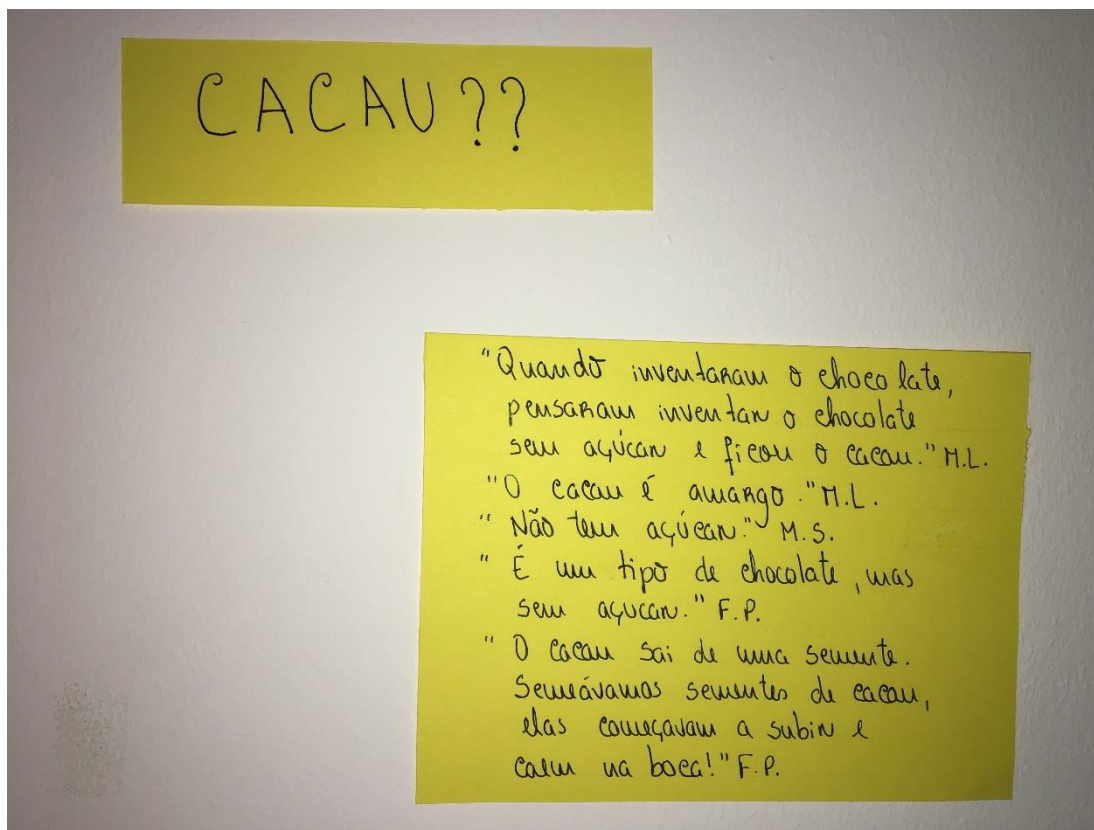 CACAU??
"Quando inventaram o chocolate,
pensaram inventar o chocolate
sem açúcar e ficou o cacau." M.L.
"O cacau é amargo." M.L.
"Não tem açúcar." M.S.
"É um tipo de chocolate, mas
sem açucar." F.P.
"O cacau sai de uma semente.
Semeávamos sementes de cacau,
elas começavam a subir e
caem na boca!" F.P.